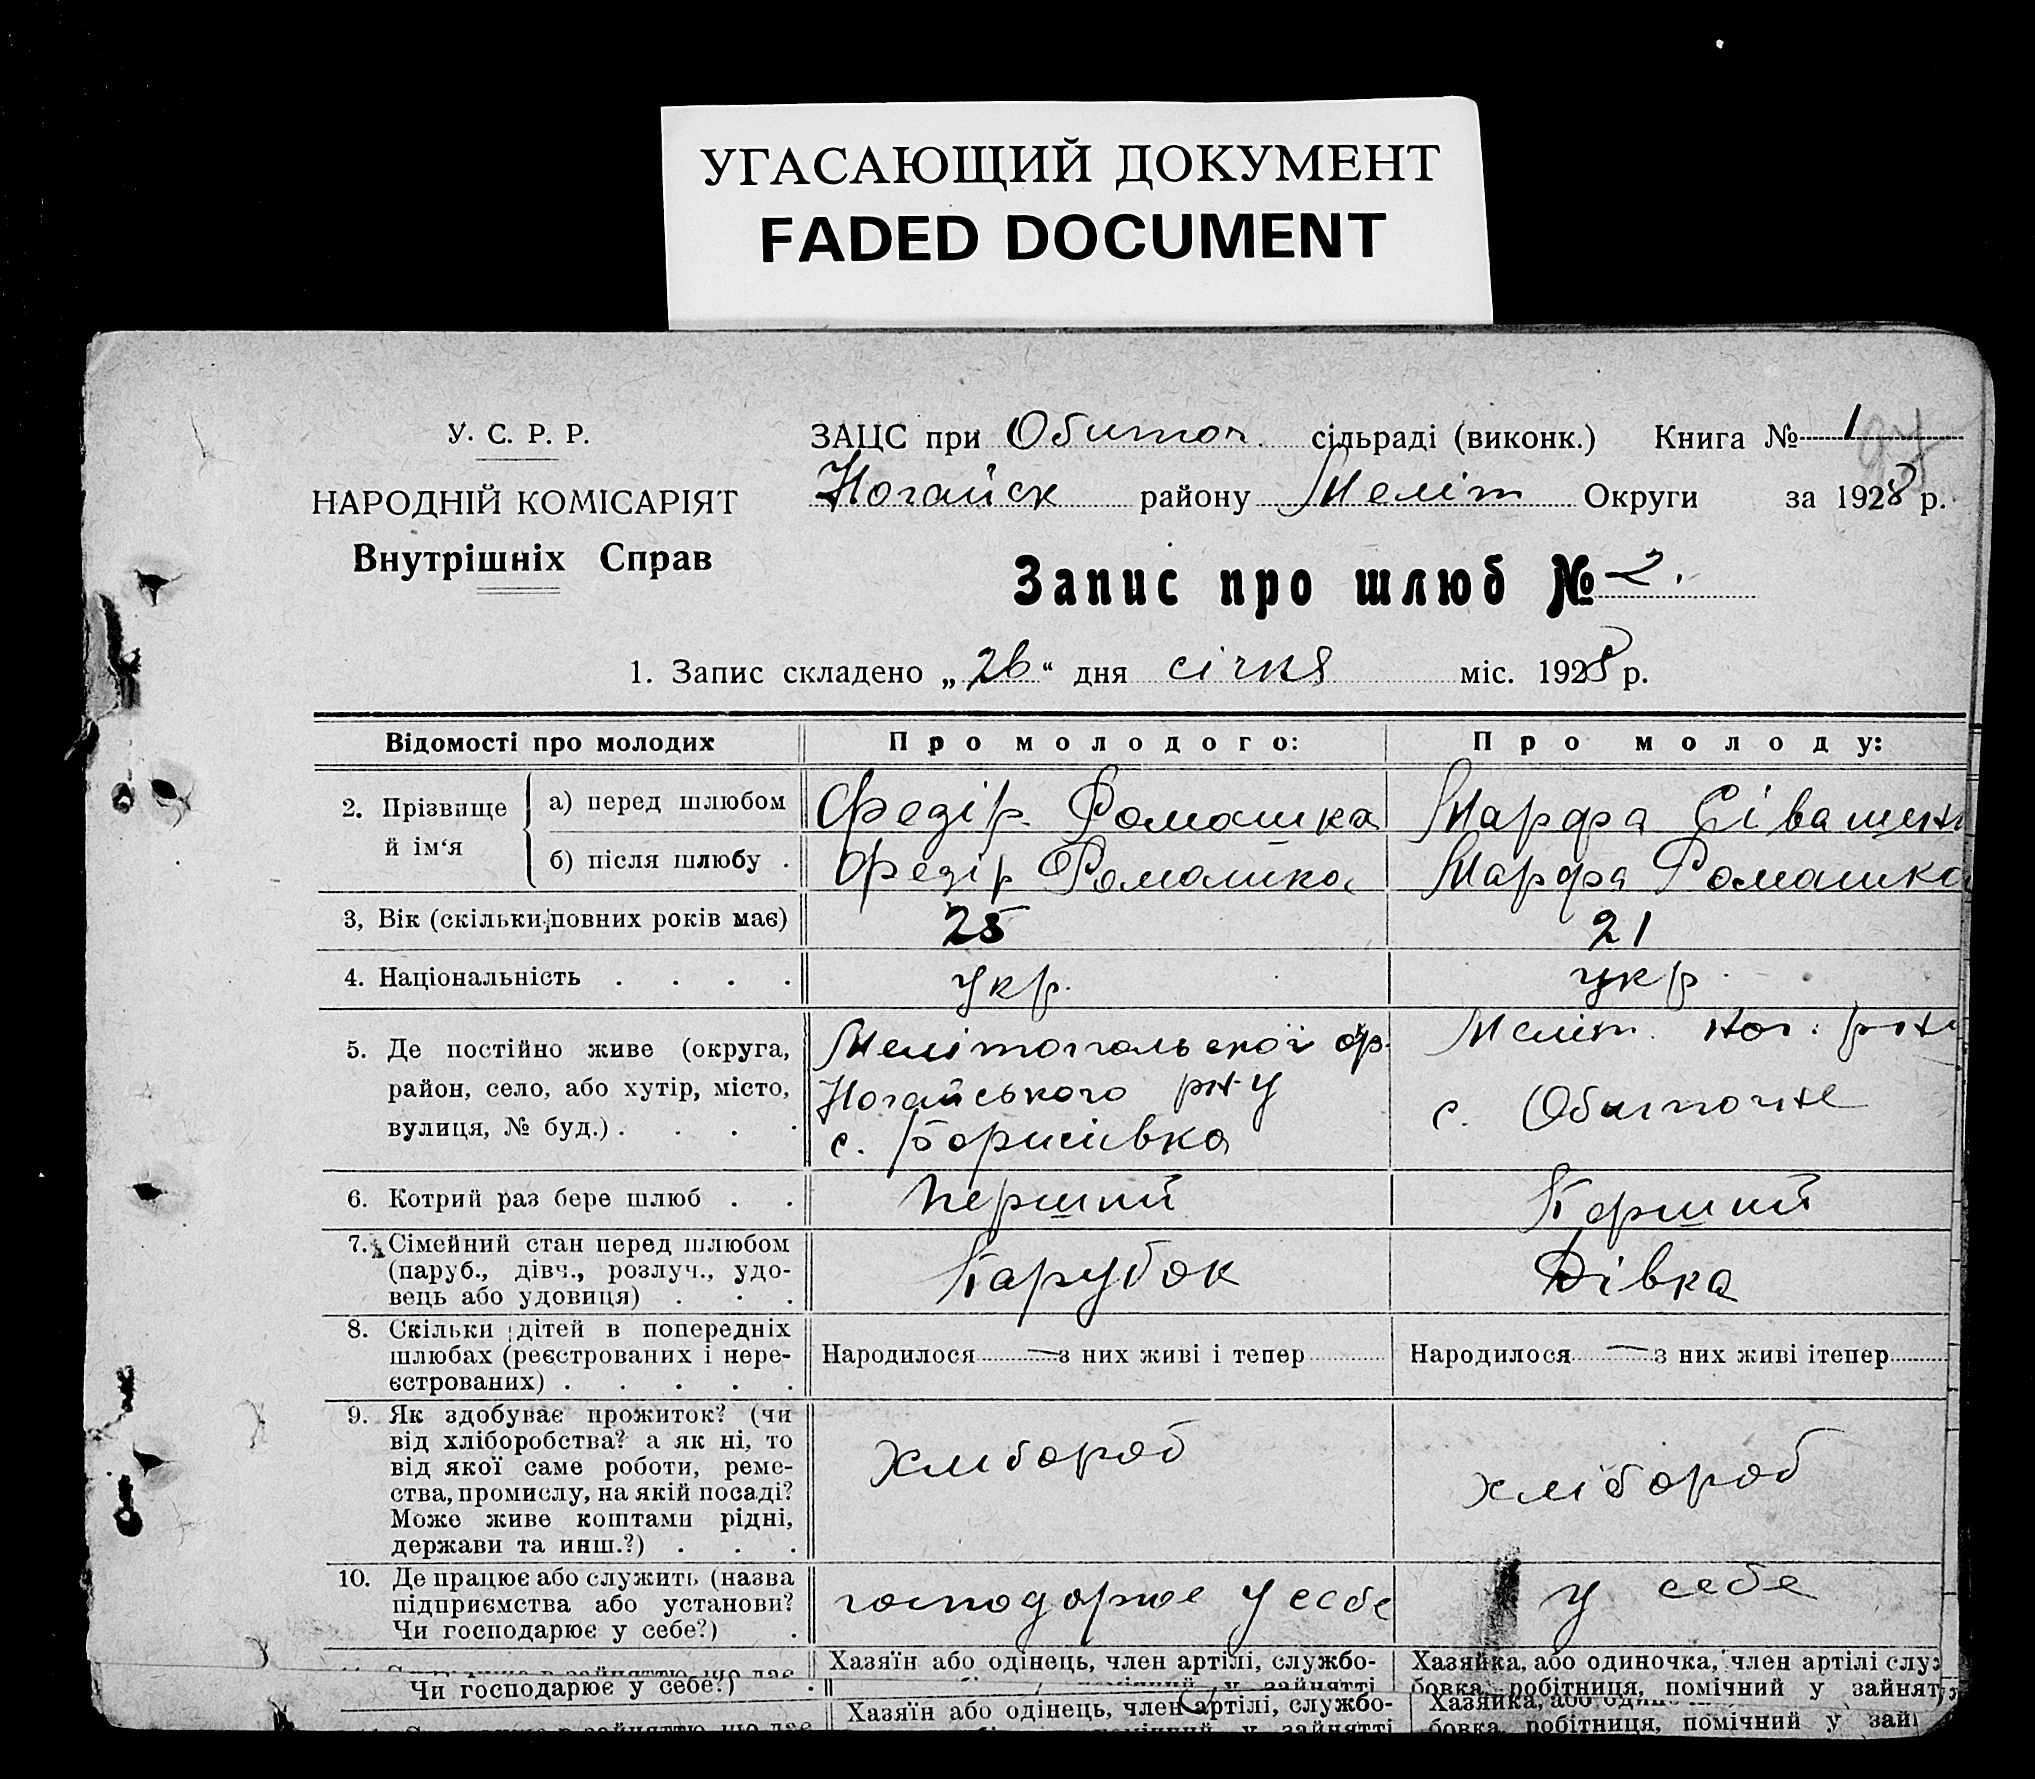 УГАСАЮЩИЙ ДОКУМЕНТ
FADED DOCUMENT
У. С. Р. Р.
НАРОДНІЙ КОМІСАРІЯТ
Внутрішніх Справ
ЗАЦС при Обиточ. сільраді (виконк.) Книга № 1
Ногайск району Меліт Округи за 1928 р.
Запис про шлюб № 2.
1. Запис складено „26“ дня січня міс. 1928 р.
Відомості про молодих
Про молодого:
Про молоду:
2. Прізвище й ім‘я
а) перед шлюбом
Федір Ромашка
Марфа Сіващен
б) після шлюбу .
Федір Ромашка
Марфа Ромашка
3, Вік (скільки повних років має)
25
21
4. Національність . . . .
укр.
укр.
5. Де постійно живе (округа,
район, село, або хутір, місто,
вулиця, № буд.) . . . .
Мелітопольської окр.
Ногайського рн-у
с. Борисівка
Меліт. Ног. рн
с. Обиточне
6. Котрий раз бере шлюб . .
Перший
Перший
7. Сімейний стан перед шлюбом
(паруб., дівч., розлуч., удо-
вець або удовиця) . . .
Парубок
Дівка
8. Скільки дітей в попередніх
шлюбах (реєстрованих і нере-
єстрованих) . . . . .
Народилося — з них живі і тепер
Народилося — з них живі ітепер
9. Як здобуває прожиток? (чи
від хліборобства? а як ні, то
від якої саме роботи, реме-
ства, промислу, на якій посаді?
Може живе коштами рідні,
держави та инш.?) . . .
хлібороб
хлібороб
10. Де працює або служить (назва
підприємства або установи?
Чи господарює у себе?) .
господарює у себе
у себе
Хазяїн або одінець, член артілі, службо-
Хазяйка, або одиночка, член артілі служ
бовка, робітниця, помічний у зайнят
Чи господарює у себе?) .
Хазяїн або одінець, член артілі, службо-
бовка, робітниця, помічний у зай